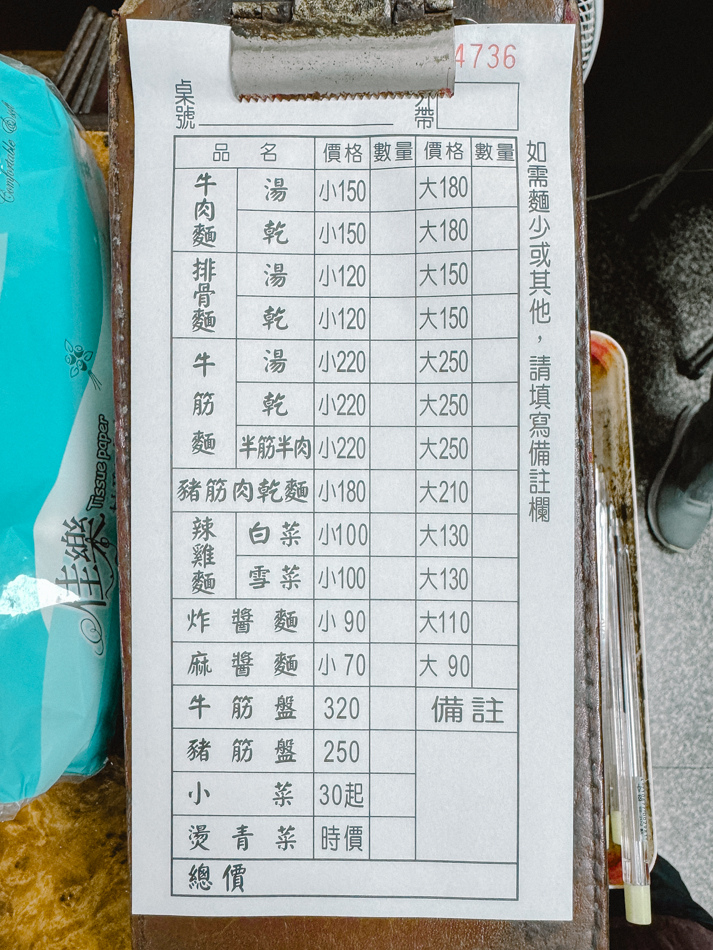 4736
桌號 外帶
品名 價格 數量 價格 數量
牛肉麵 湯 小150 大180
乾 小150 大180
排骨麵 湯 小120 大150
乾 小120 大150
牛筋麵 湯 小220 大250
乾 小220 大250
半筋半肉 小220 大250
豬筋肉乾麵 小180 大210
辣雞麵 白菜 小100 大130
雪菜 小100 大130
炸醬麵 小90 大110
麻醬麵 小70 大90
牛筋盤 320 備註
豬筋盤 250
小菜 30起
燙青菜 時價
總價
如需麵少或其他，請填寫備註欄
Comfortable
佳樂
Tissue paper